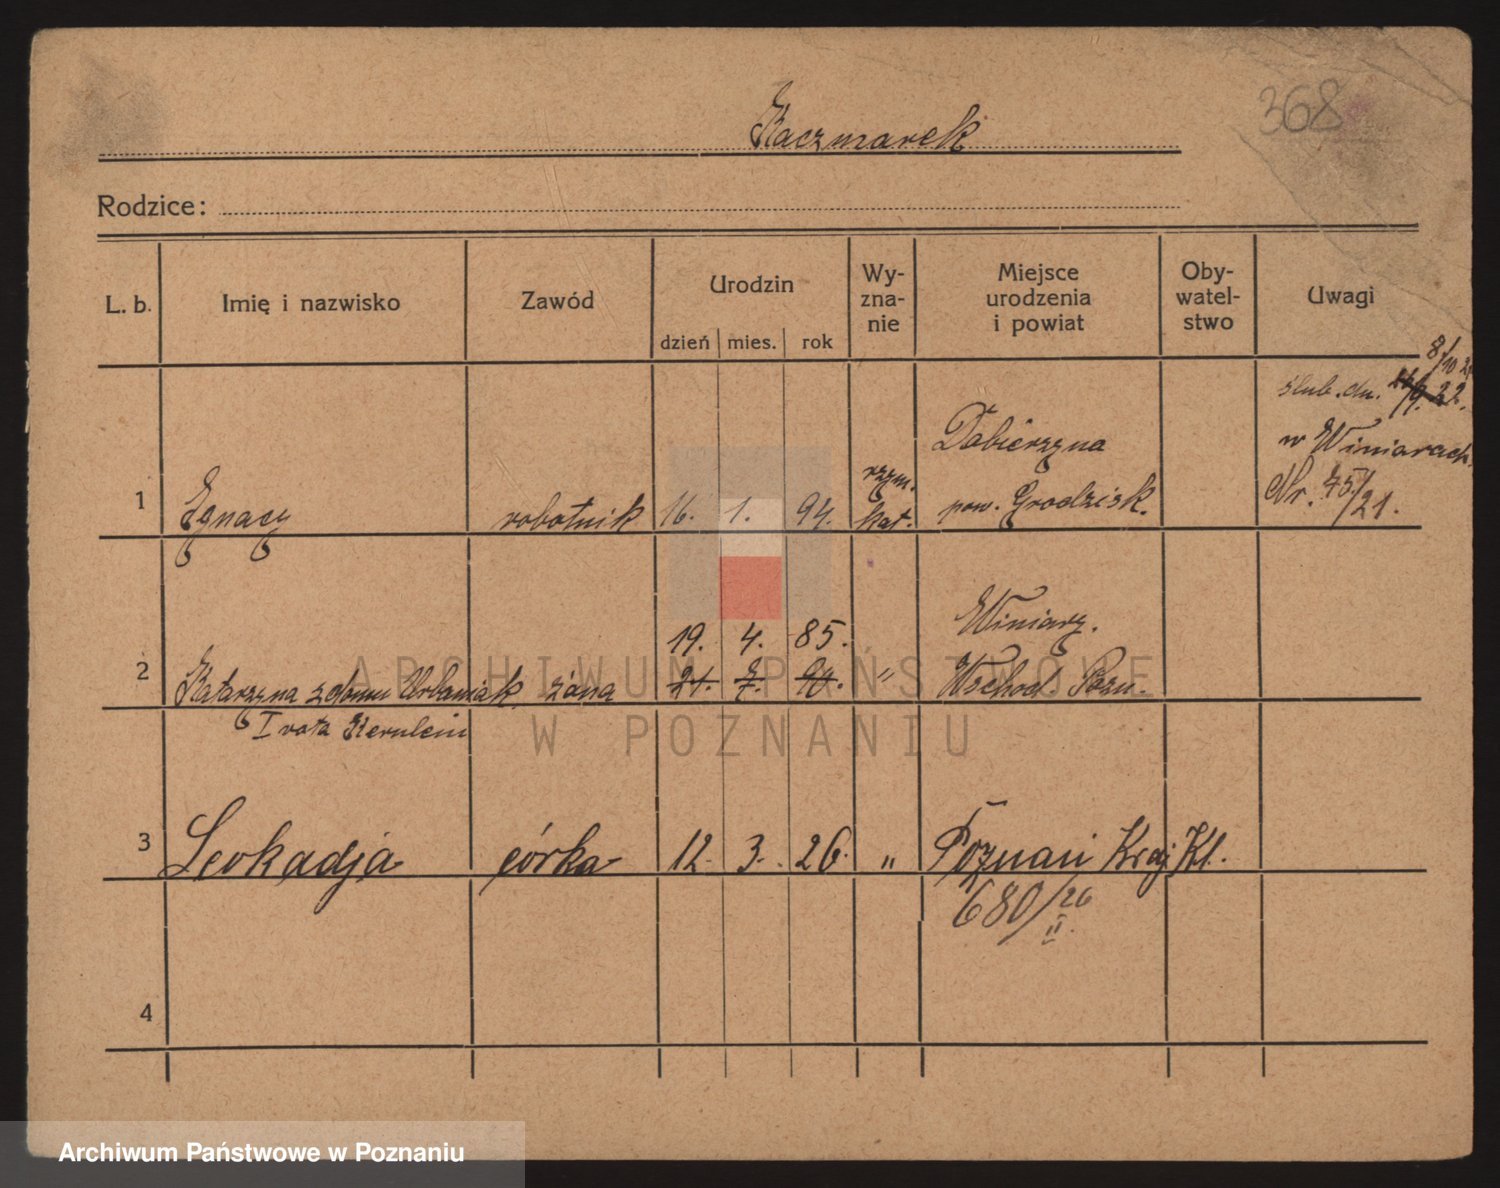 368
Kaczmarek
Rodzice:
L. b.
Imię i nazwisko
Zawód
Urodzin
dzień mies. rok
Wy-
zna-
nie
Miejsce
urodzenia
i powiat
Oby-
watel-
stwo
Uwagi
1
Ignacy
robotnik
16. 1. 94.
rzym.
kat.
Dabierzyna
pow. Grodzisk.
8/10 21
ślub. dn. 9. 22.
w Winiarach
Nr. 45/21.
2
Katarzyna z domu Urbaniak
I vota
żona
19. 4. 85.
21. 7. 90.
"
Winiary.
Wschod. Pozn.
3
Leokadja
córka
12. 3. 26.
"
Poznań Kraj Kl.
680/26
II.
4
ARCHIWUM PAŃSTWOWE
W POZNANIU
Archiwum Państwowe w Poznaniu